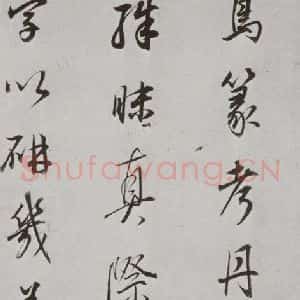 鳥篆考丹
殊昧真際
字以研幾
Shufawang.CN